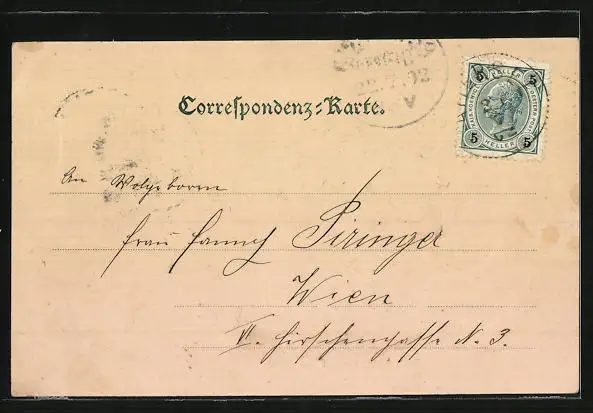 Correspondenz-Karte.
5 HELLER 5
5 HELLER 5
22.7.02
A
An Wolgeboren
Frau Fanny Piringer
Wien
VI. Hirschengasse N. 3.